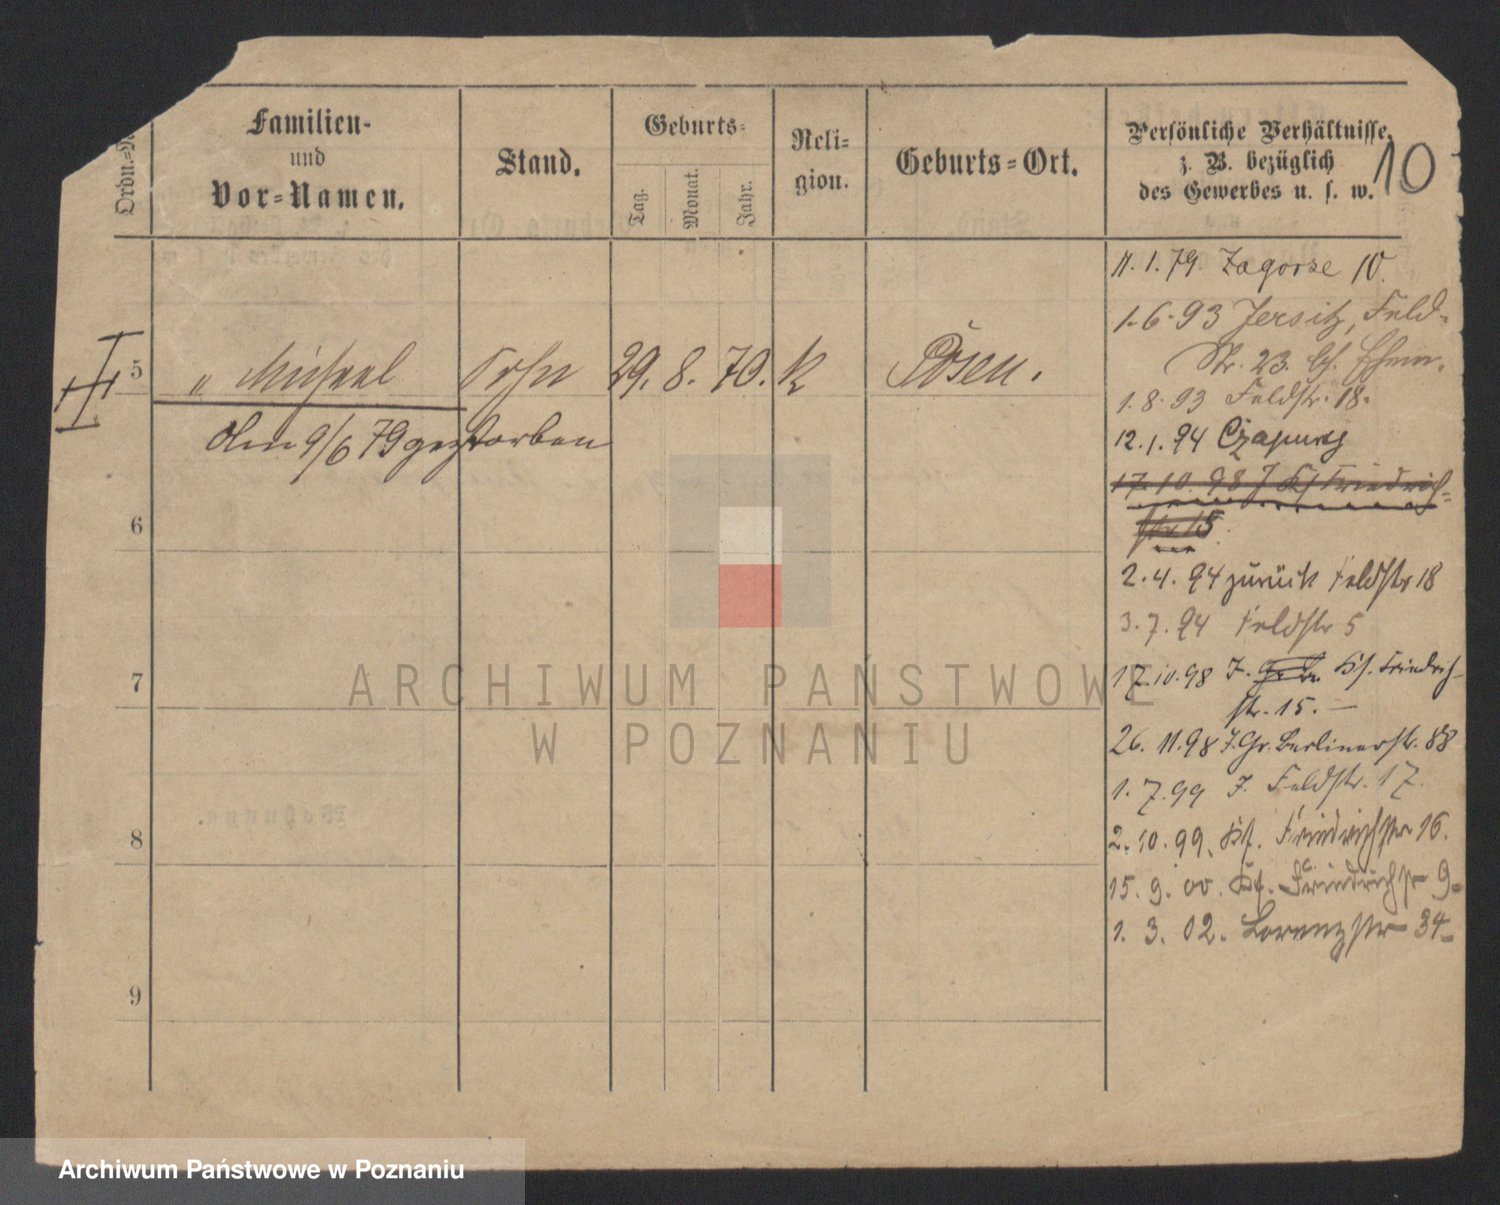 Ordn.=N
Familien-
und
Vor=Namen.
Stand.
Geburts-
Tag.
Monat.
Jahr.
Reli=
gion.
Geburts=Ort.
Persönliche Verhältnisse,
z. B. bezüglich
des Gewerbes u. s. w.
10
11. 1. 79. Zagorze 10.
1. 6. 93 Jersitz, Feld-
Str. 23. bf.
1. 8. 93 Feldstr. 18.
5 " Michael Sohn 29. 8. 70. k Posen.
am 9/6 79 gestorben
12. 1. 94 Czapury
17. 10. 98 J Kf Friedrich-
str 15
6
2. 4. 94 zurück Feldstr 18
3. 7. 94 Feldstr 5
7
17. 10. 98 J. Kf. Friedrich-
str. 15. —
26. 11. 98 J. Gr. Berlinerstr. 88
1. 7. 99 J. Feldstr. 17.
8
2. 10. 99. Kf. Friedrichstr 16.
15. 9. 00. Kf. Friedrichstr 9-
1. 3. 02. Lorenzstr 34-
9
ARCHIWUM PAŃSTWOWE
W POZNANIU
Archiwum Państwowe w Poznaniu